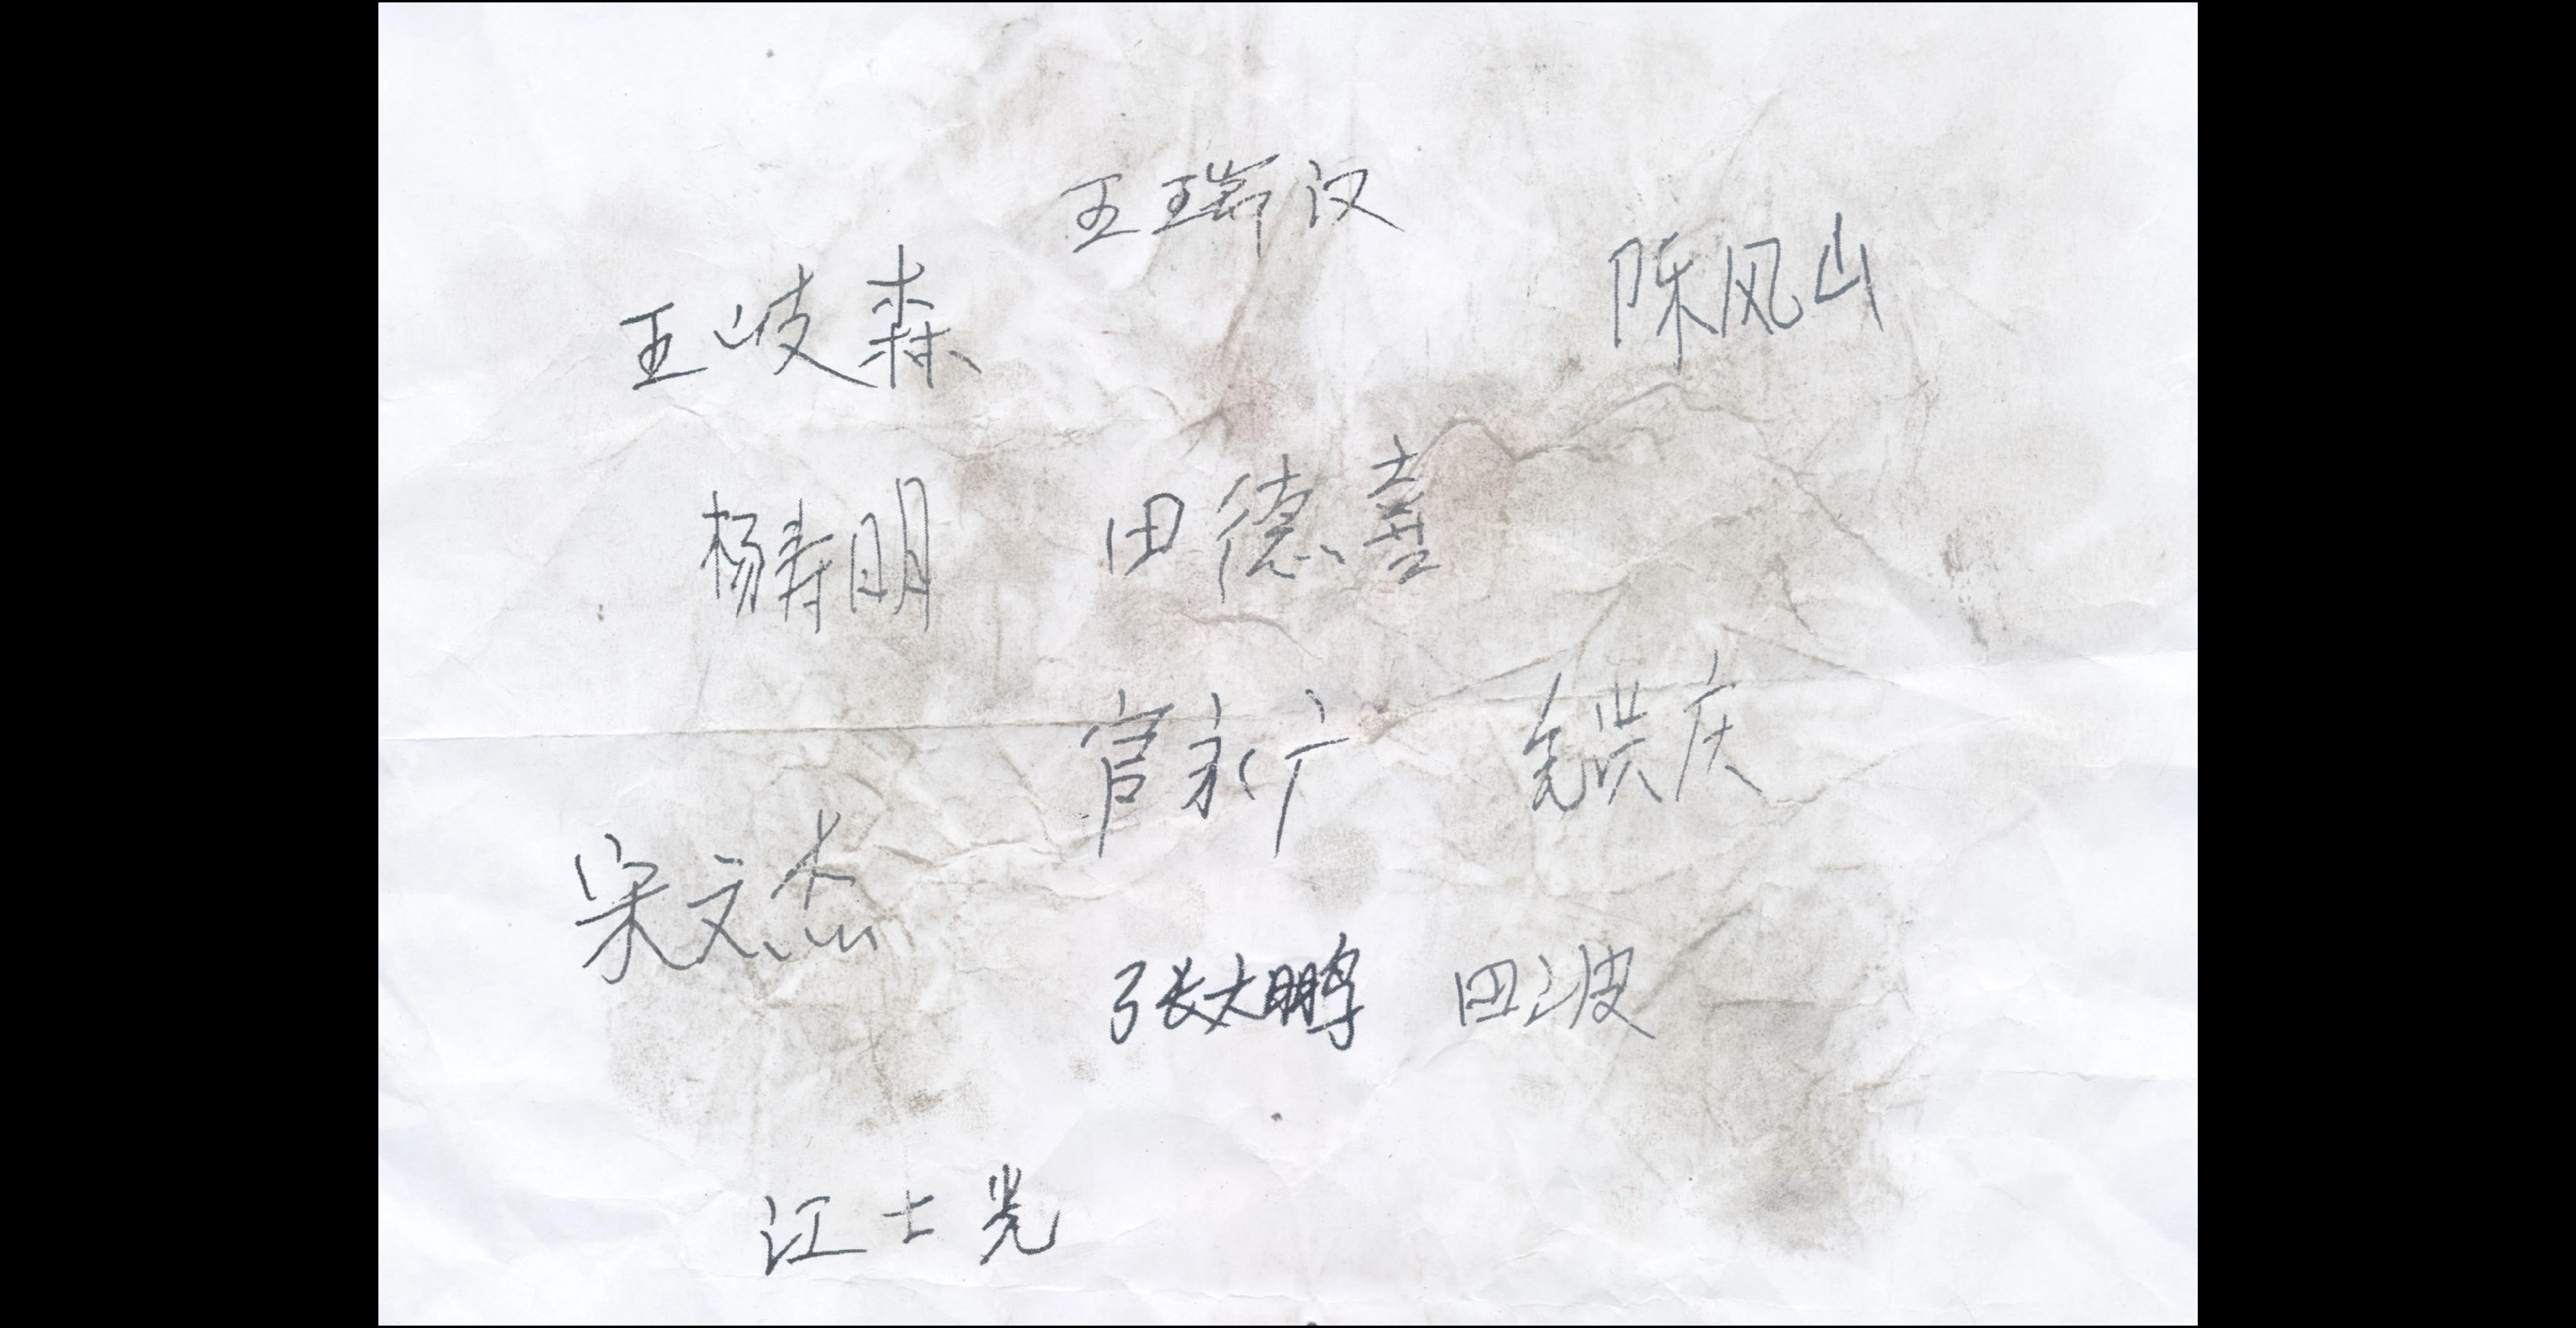 王瑞汉
陈风山
王岐森
杨寿明
田德喜
官永广
洪庆
宋文杰
张大鹏
田波
江士光